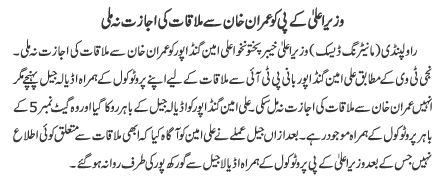 وزیراعلیٰ کے پی کو عمران خان سے ملاقات کی اجازت نہ ملی
راولپنڈی (مانیٹرنگ ڈیسک) وزیراعلیٰ خیبر پختونخوا علی امین گنڈا پور کو عمران خان سے ملاقات کی اجازت نہ ملی۔
نجی ٹی وی کے مطابق علی امین گنڈا پور بانی پی ٹی آئی سے ملاقات کے لیے اپنے پروٹوکول کے ہمراہ اڈیالہ جیل پہنچے مگر
انہیں عمران خان سے ملاقات کی اجازت نہ مل سکی۔ علی امین گنڈا پور کو اڈیالہ جیل کے باہر روکا گیا اور وہ گیٹ نمبر 5 کے
باہر پروٹوکول کے ہمراہ موجود رہے۔ بعد ازاں جیل عملے نے علی امین کو آگاہ کیا کہ ابھی ملاقات سے متعلق کوئی اطلاع
نہیں جس کے بعد وزیراعلیٰ کے پی پروٹوکول کے ہمراہ اڈیالا جیل سے گورکھ پور کی طرف روانہ ہو گئے۔